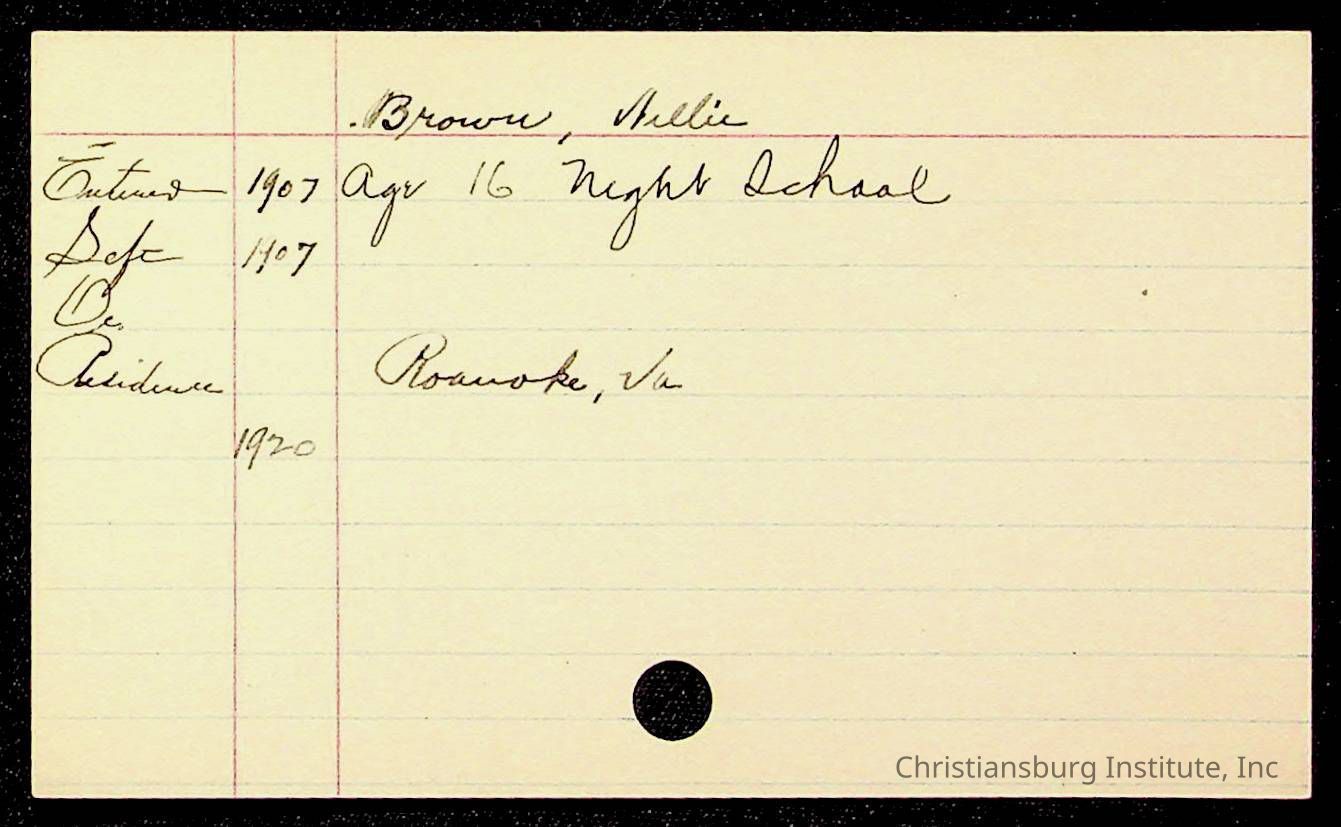 Brown, Nellie
Entered 1907 Age 16 Night School
Left 1907
Residence Roanoke, Va
1920
Christiansburg Institute, Inc